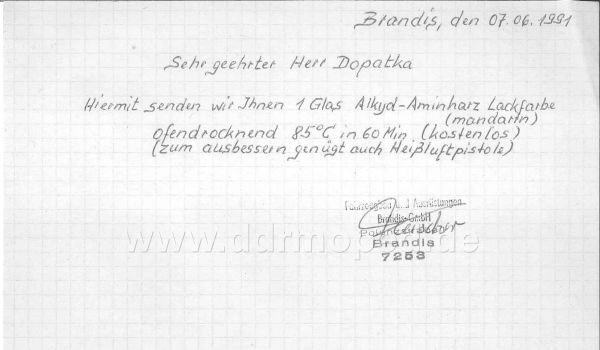 Brandis, den 07.06.1991
Sehr geehrter Herr Dopatka
Hiermit senden wir Ihnen 1 Glas Alkyd-Aminharz Lackfarbe
(mandarin)
ofendrocknend 85°C in 60 Min. (kostenlos)
(zum ausbessern genügt auch Heißluftpistole)
Fahrzeugbau und Ausrüstungen
Brandis GmbH
Brandis
7253
www.ddrmoped.de